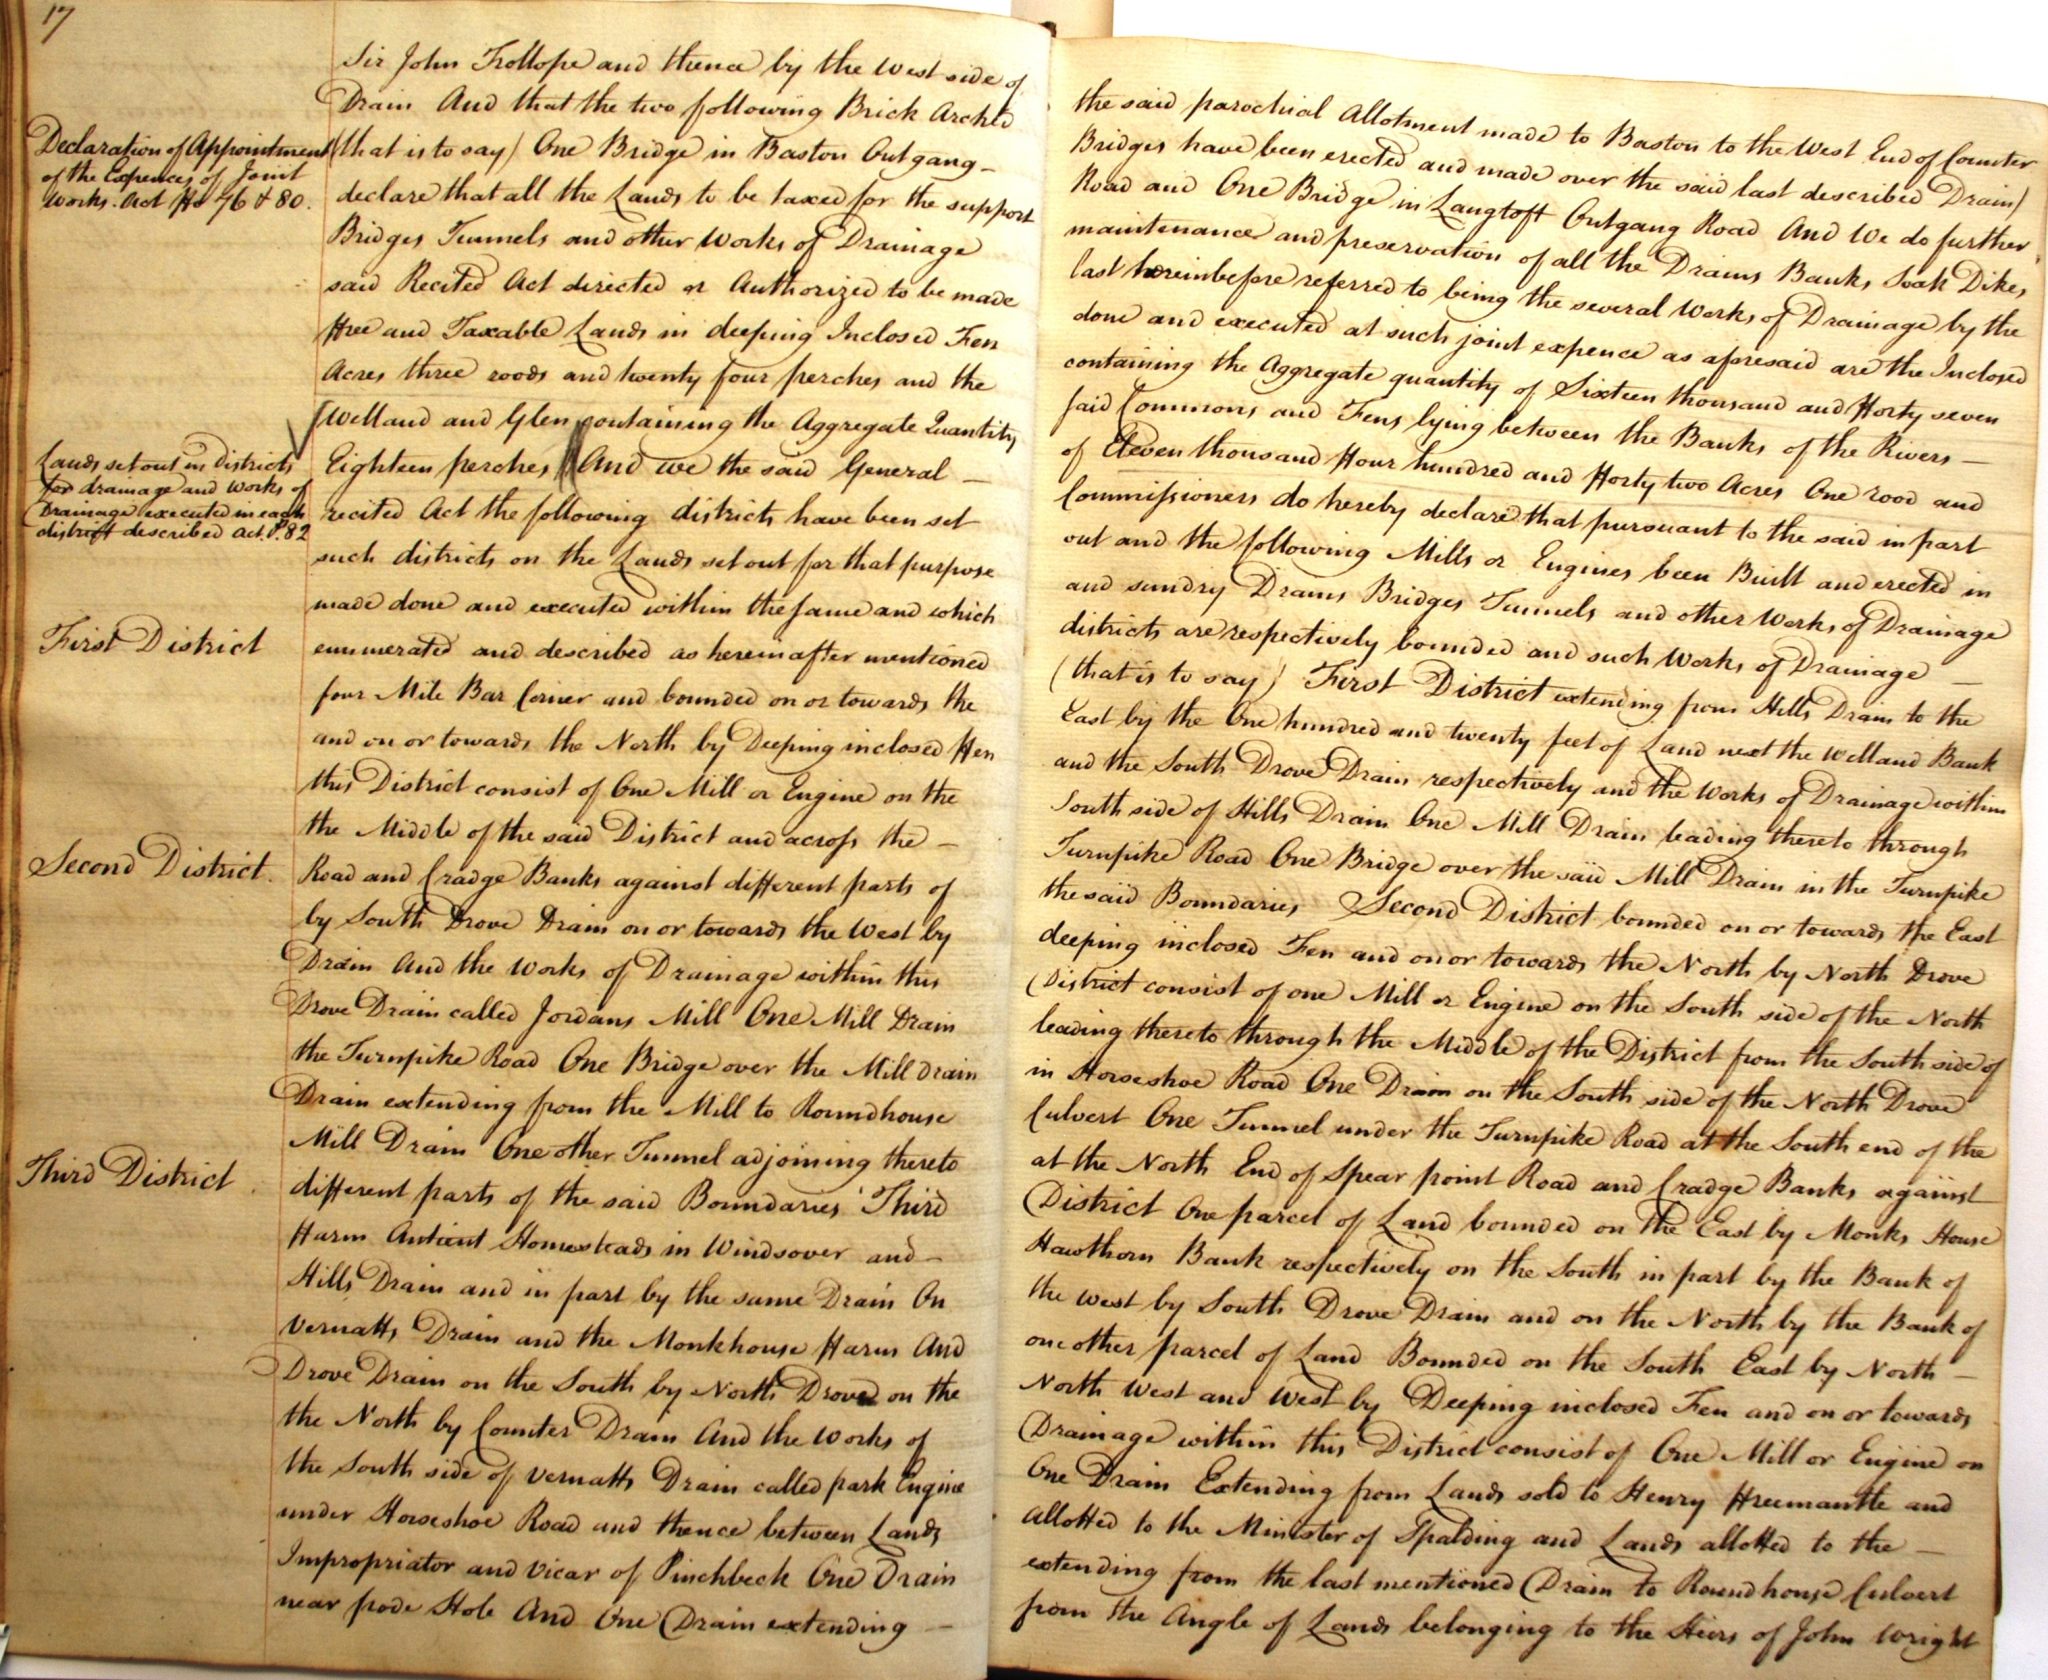 17
Sir John Trollope and thence by the West side of
the said parochial Allotment made to Baston to the West End of Counter
Drain And that the two following Brick Arched
Bridges have been erected and made over the said last described Drain)
Declaration of Appointment
of the Expences of Joint
Works. Act No 76 & 80.
(that is to say) One Bridge in Baston Outgang
Road and One Bridge in Langtoft Outgang Road And We do further
declare that all the Lands to be taxed for the support
maintenance and preservation of all the Drains Banks, Soak Dikes
Bridges Tunnels and other Works of Drainage
last hereinbefore referred to being the several Works of Drainage by the
said Recited Act directed or Authorized to be made
done and executed at such joint expence as aforesaid are the Inclosed
ffree and Taxable Lands in deeping Inclosed Fen
containing the Aggregate quantity of Sixteen thousand and fforty seven
Acres three roods and twenty four perches and the
said Commons and Fens lying between the Banks of the Rivers
Welland and Glen containing the Aggregate Quantity
of Eleven thousand ffour hundred and fforty two Acres One rood and
Lands set out in districts
for drainage and works of
Drainage executed in each
district described Act. P. 82
Eighteen perches And we the said General
Commissioners do hereby declare that pursuant to the said in part
recited Act the following districts have been set
out and the following Mills or Engines been Built and erected in
such districts on the Lands set out for that purpose
and sundry Drains Bridges Tunnels and other Works of Drainage
made done and executed within the same and which
districts are respectively bounded and such Works of Drainage
First District
enumerated and described as hereinafter mentioned
(that is to say) First District extending from Hills Drain to the
four Mile Bar Corner and bounded on or towards the
East by the One hundred and twenty feet of Land next the Welland Bank
and on or towards the North by Deeping inclosed ffen
and the South Drove Drain respectively and the Works of Drainage within
this District consist of One Mill or Engine on the
South side of Hills Drain One Mill Drain leading thereto through
the Middle of the said District and across the
Turnpike Road One Bridge over the said Mill Drain in the Turnpike
Second District
Road and Cradge Banks against different parts of
the said Boundaries Second District bounded on or towards the East
by South Drove Drain on or towards the West by
deeping inclosed Fen and on or towards the North by North Drove
Drain And the Works of Drainage within this
District consist of one Mill or Engine on the South side of the North
Drove Drain called Jordans Mill One Mill Drain
leading thereto through the Middle of the District from the South side of
the Turnpike Road One Bridge over the Mill drain
in Horseshoe Road One Drain on the South side of the North Drove
Drain extending from the Mill to Roundhouse
Culvert One Tunnel under the Turnpike Road at the South end of the
Mill Drain One other Tunnel adjoining thereto
at the North End of Spear point Road and Cradge Banks against
Third District
different parts of the said Boundaries Third
District One parcel of Land bounded on the East by Monks House
ffarm Antient Homesteads in Windsover and
Hawthorn Bank respectively on the South in part by the Bank of
Hills Drain and in part by the same Drain On
the West by South Drove Drain and on the North by the Bank of
Vernatts Drain and the Monkhouse ffarm And
one other parcel of Land Bounded on the South East by North
Drove Drain on the South by North Drove on the
North West and West by Deeping inclosed Fen and on or towards
the North by Counter Drain And the Works of
Drainage within this District consist of One Mill or Engine on
the South side of Vernatts Drain called park Engine
One Drain Extending from Lands sold to Henry ffreemantle and
under Horseshoe Road and thence between Lands
allotted to the Minister of Spalding and Lands allotted to the
Impropriator and Vicar of Pinchbeck One Drain
extending from the last mentioned Drain to Roundhouse Culvert
near pode Hole And One Drain extending
from the Angle of Lands belonging to the Heirs of John Wright